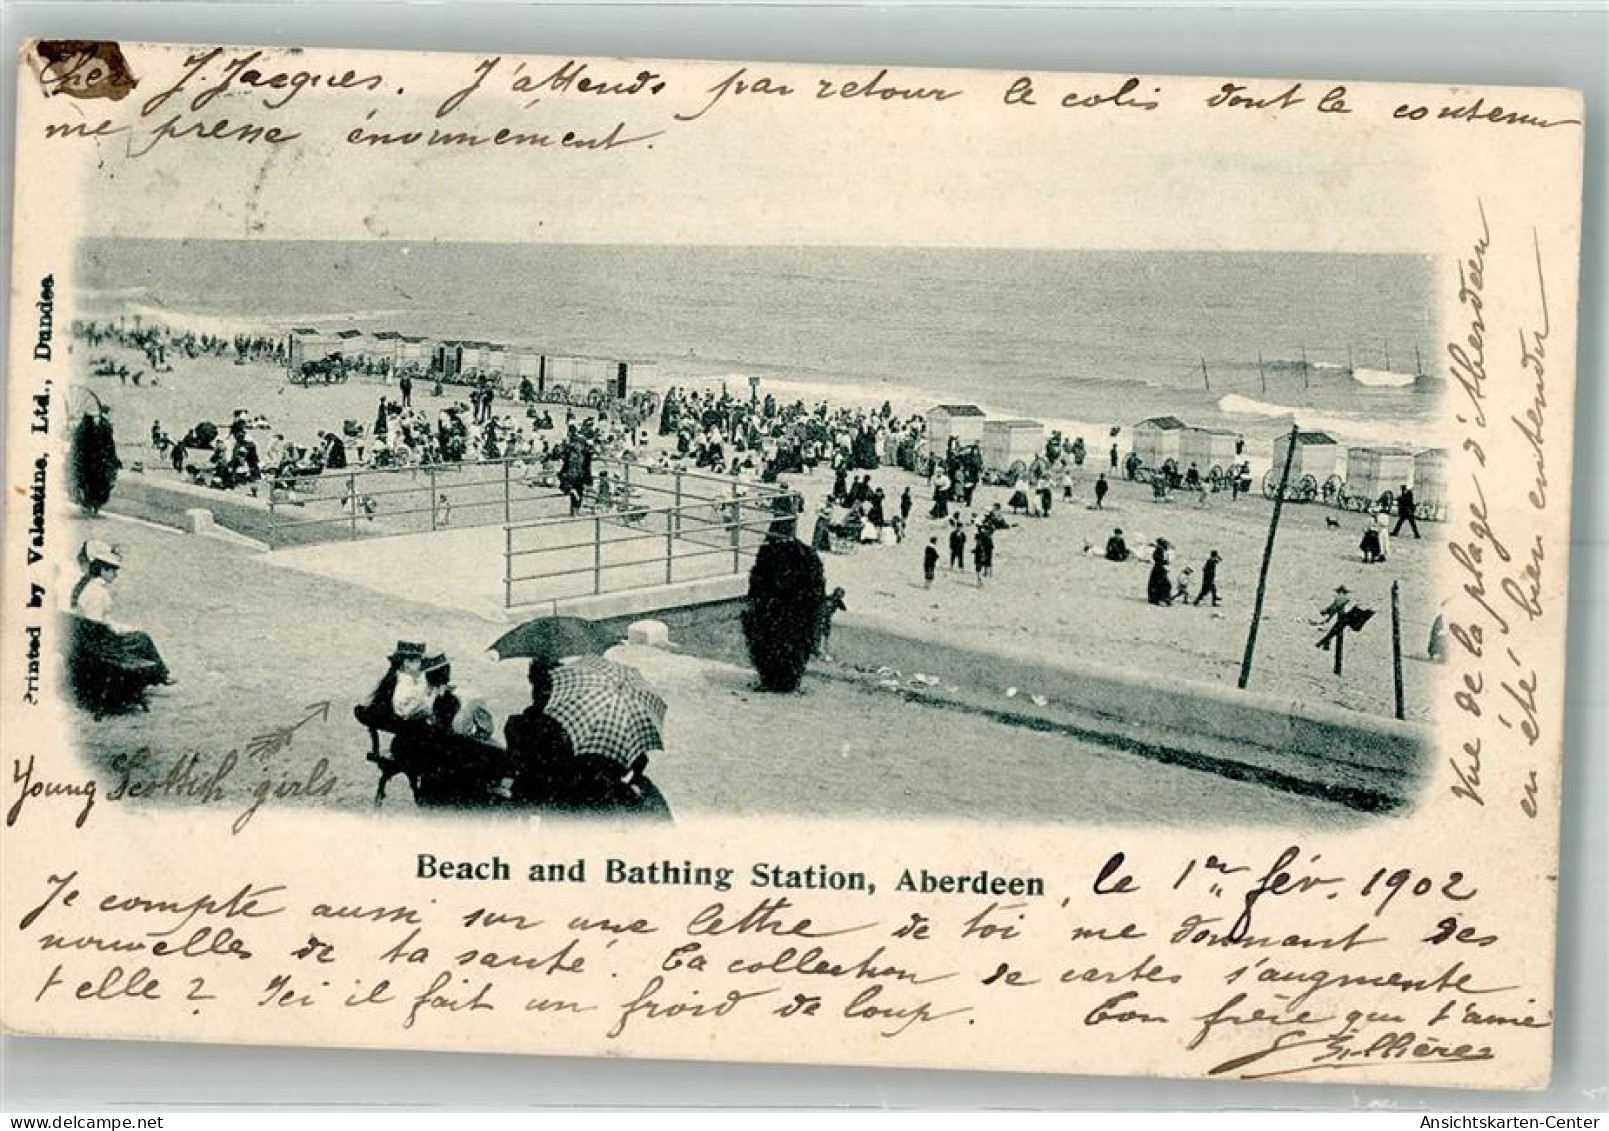 Cher J. Jacques. J'attends par retour le colis dont le contenu
me presse énormément.
Printed by Valentine, Ltd., Dundee.
Vue de la plage d'Aberdeen
en été bien entendu
Young Scottish girls
Beach and Bathing Station, Aberdeen, le 1er fév. 1902
Je compte aussi sur une lettre de toi me donnant des
nouvelles de ta santé. Ta collection de cartes s'augmente
t elle? Ici il fait un froid de loup. Ton frère qui t'aime
Ansichtskarten-Center